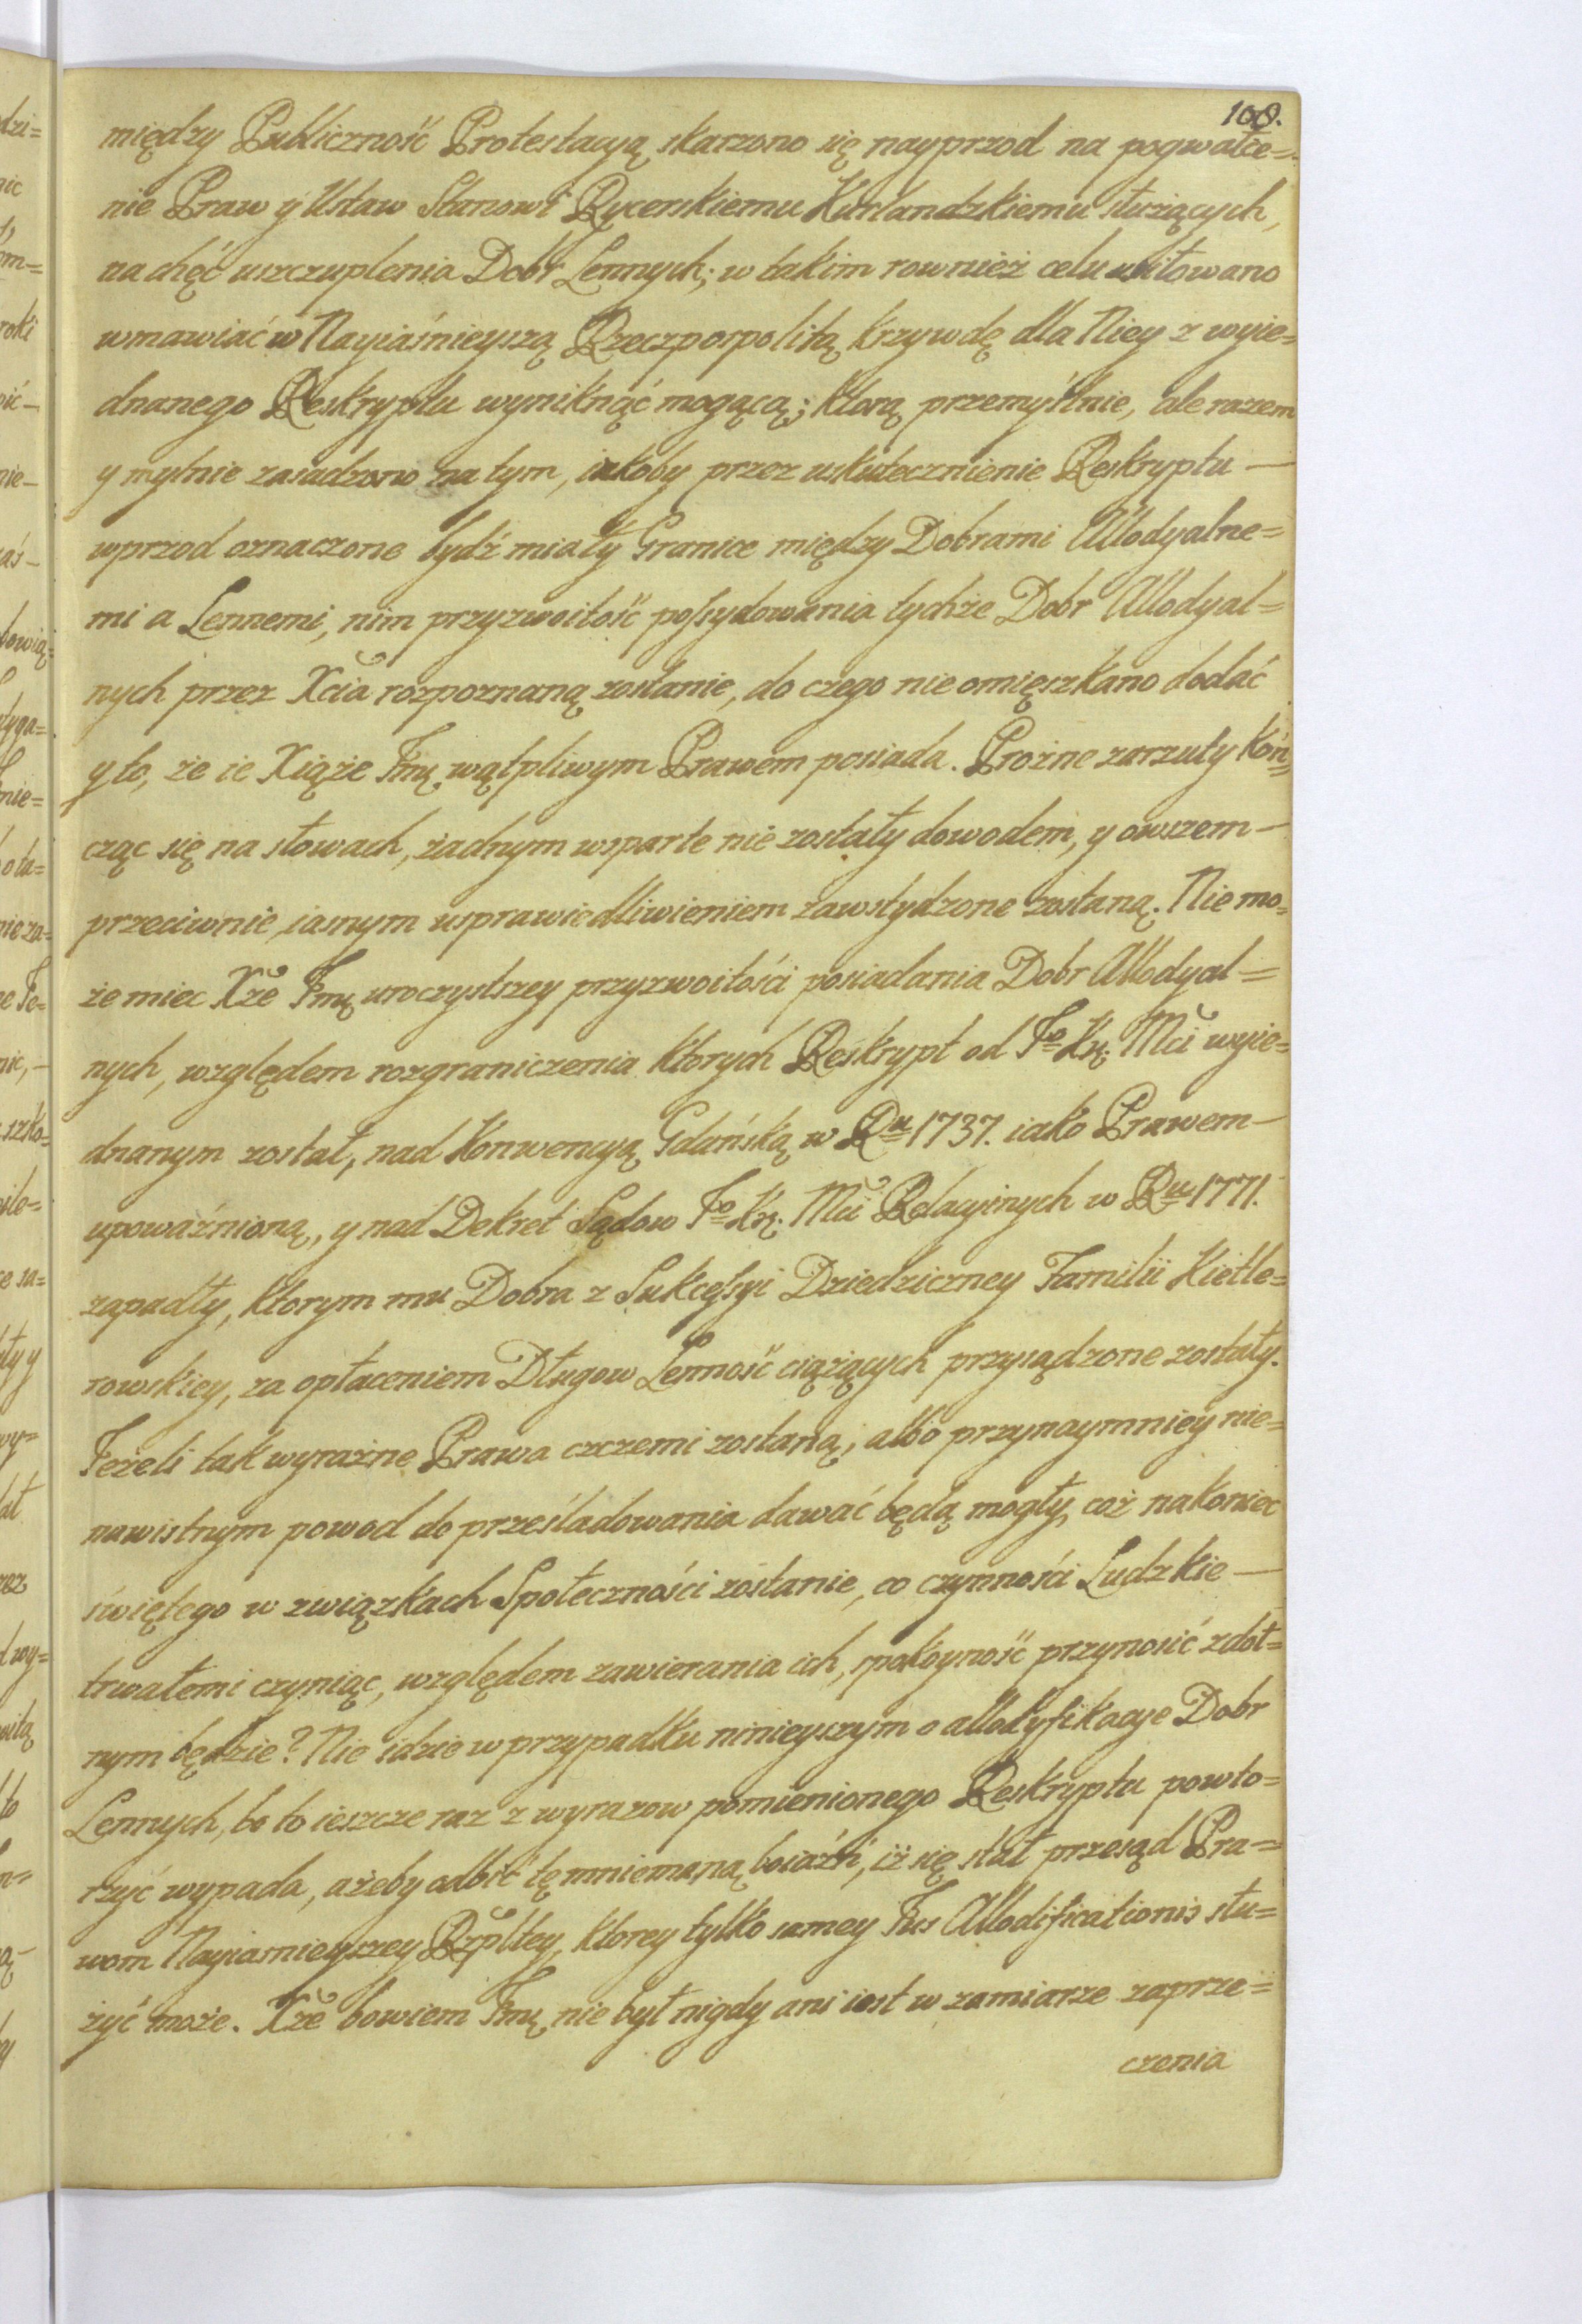 108.
między Publiczność Protestacyą skarzono się nayprzod na pogwałce=
nie Praw y Ustaw Stanowi Rycerskiemu Kurlandzkiemu służących,
na chęć uszczuplenia Dobr Lennych; w takim rownież celu usiłowano
wmawiać w Nayiaśnieyszą Rzeczpospolitą krzywdę dla Niey z wyie=
dnanego Reskryptu wyniknąć mogącą; ktorą przemyślnie, ale razem
y mylnie zasadzono na tym, iakoby przez uskutecznienie Reskryptu —
wprzod oznaczone bydź miały Granice między Dobrami Allodyalne=
mi a Lennemi, nim przyzwoitość possydowania tychże Dobr Allodyal=
nych przez Xcia rozpoznaną zostanie, do czego nie omięszkano dodać
y to, że ie Xiąże Jmę wątpliwym Prawem posiada. Prożne zarzuty koń=
cząc się na słowach, żadnym wsparte nie zostały dowodem, y owszem —
przeciwnie, iasnym usprawiedliwieniem zawstydzone zostaną. Nie mo=
że miec Xże Jmę uroczystszey przyzwoitości posiadania Dobr Allodyal=
nych, względem rozgraniczenia ktorych Reskrypt od Jo Kę. Mci wyie=
dnanym został, nad Konwencyą Gdańską w Ru 1737. iako Prawem —
upoważnioną, y nad Dekret Sądow Jo Kę. Mci Relacyinych w Ru 1771.
zapadły, ktorym mu Dobra z Sukcessyi Dziedziczney Familii Kietle=
rowskiey, za opłaceniem Długow Lenność ciążących przysądzone zostały.
Jeżeli tak wyraźne Prawa czczemi zostaną; albo przynaymniey nie=
nawistnym powod do prześladowania dawać będą mogły, coż nakoniec
świętego w związkach Społeczności zostanie, co czynności Ludzkie —
trwałemi czyniąc, względem zawierania ich, spokoyność przynosić zdoł=
nym będzie? Nie idzie w przypadku ninieyszym o allodyfikacye Dobr
Lennych, bo to ieszcze raz z wyrazow pomienionego Reskryptu powto=
rzyć wypada, ażeby odbić tę mniemaną boiaźń, iż się stał przesąd Pra=
wom Nayiasnieyszey Rzpltey, ktorey tylko samey Jus Allodificationis słu=
żyć może. Xże bowiem Jmę nie był nigdy ani iest w zamiarze zaprze=
czenia